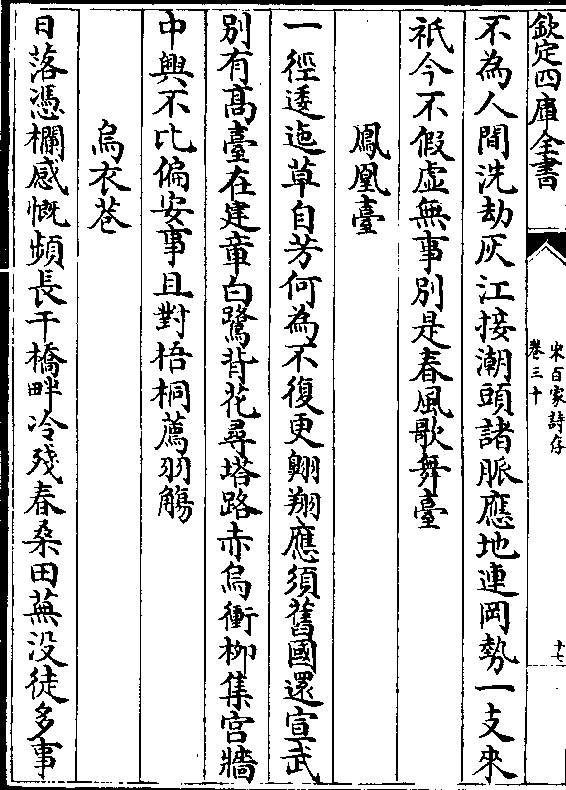 欽定四庫全書
宋百家詩存
卷三十
十七
不為人間洗劫灰江接潮頭諸脈應地連岡勢一支來
祇今不假虛無事別是春風歌舞臺
鳳凰臺
一徑逶迤草自芳何為不復更翺翔應須舊國還宣武
別有髙臺在建章白鷺背花尋塔路赤烏衝柳集宫牆
中興不比偏安事且對梧桐薦羽觴
烏衣巷
日落憑欄感慨頻長干橋畔冷殘春桑田蕪没徒多事